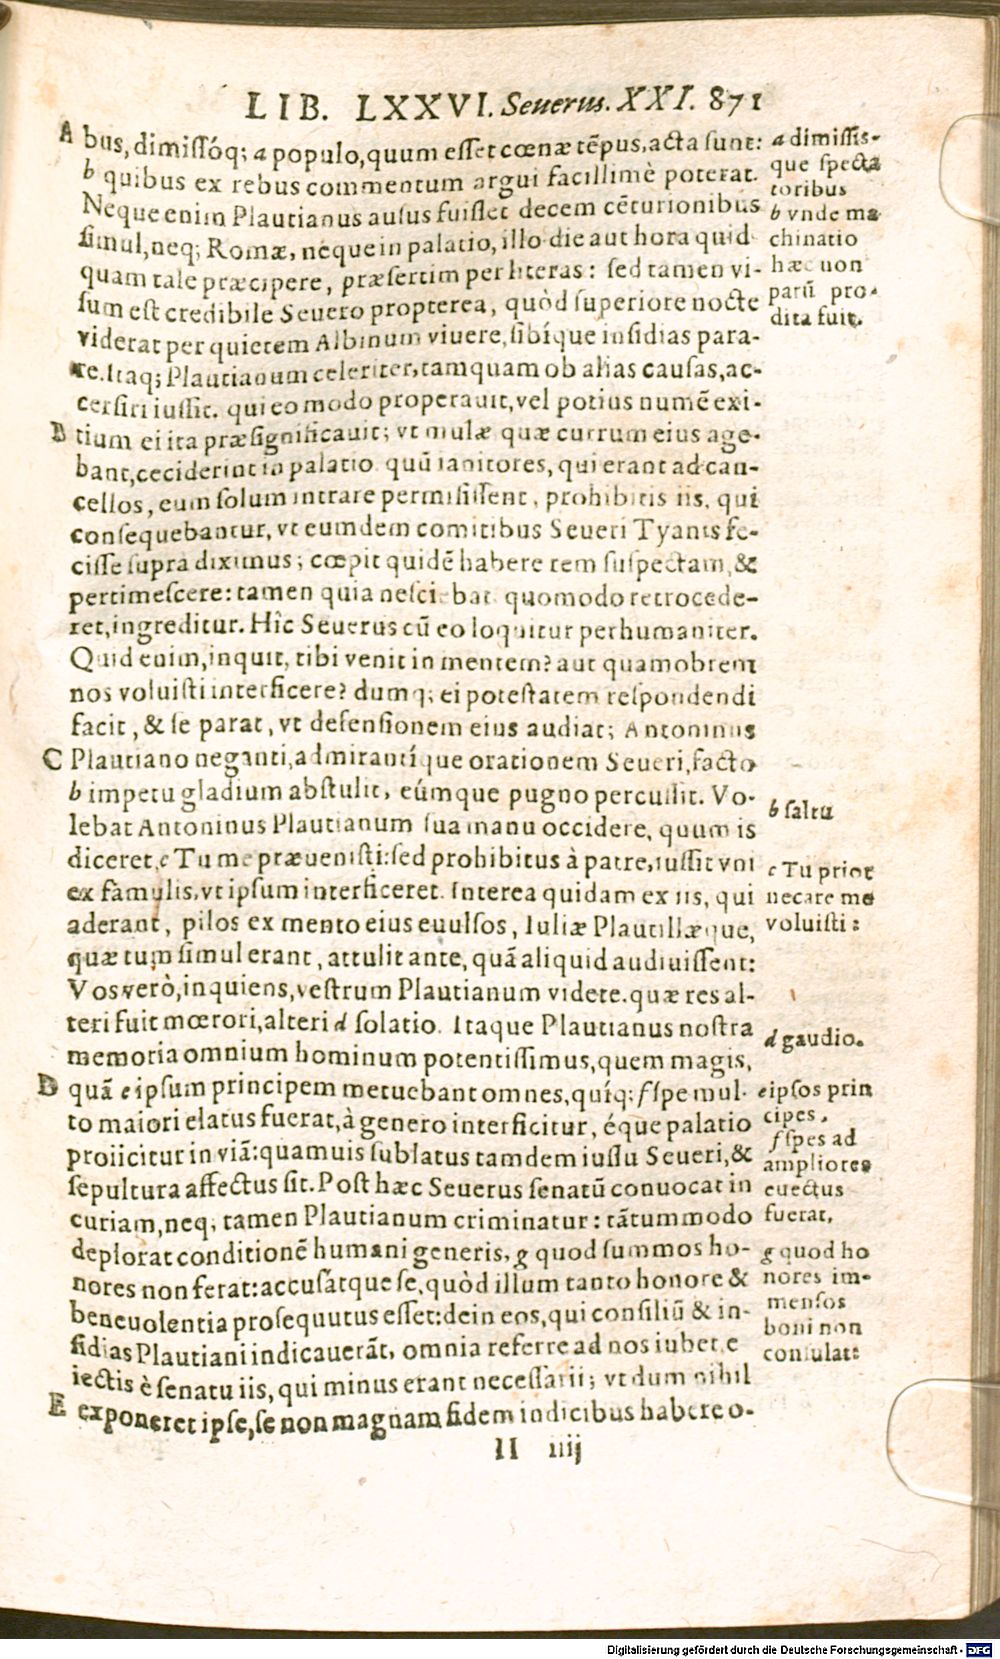 LIB. LXXVI. Seuerus. XXI. 871
A bus, dimissóq; a populo, quum esset cœnæ tẽpus, acta sunt:
b quibus ex rebus commentum argui facillimè poterat.
Neque enim Plautianus ausus fuisset decem cẽturionibus
simul, neq; Romæ, neque in palatio, illo die aut hora quid
quam tale præcipere, præsertim per literas: sed tamen vi-
sum est credibile Seuero propterea, quòd superiore nocte
viderat per quietem Albinum viuere, sibíque insidias para-
re. Itaq; Plautianum celeriter, tamquam ob alias causas, ac-
cersiri iussit. qui eo modo properauit, vel potius numẽ exi-
B tium ei ita præsignificauit; vt mulæ quæ currum eius age-
bant, ceciderint in palatio. quũ ianitores, qui erant ad can-
cellos, eum solum intrare permisissent, prohibitis iis, qui
consequebantur, vt eumdem comitibus Seueri Tyanis fe-
cisse supra diximus; cœpit quidẽ habere rem suspectam, &
pertimescere: tamen quia nesciebat quomodo retrocede-
ret, ingreditur. Hîc Seuerus cũ eo loquitur perhumaniter.
Quid enim, inquit, tibi venit in mentem? aut quamobrem
nos voluisti interficere? dumq; ei potestatem respondendi
facit, & se parat, vt defensionem eius audiat; Antoninus
C Plautiano neganti, admirantíque orationem Seueri, facto
b impetu gladium abstulit, eúmque pugno percussit. Vo-
lebat Antoninus Plautianum sua manu occidere, quum is
diceret, c Tu me præuenisti: sed prohibitus à patre, iussit vni
ex famulis, vt ipsum interficeret. Interea quidam ex iis, qui
aderant, pilos ex mento eius euulsos, Iuliæ Plautillæque,
quæ tum simul erant, attulit ante, quã aliquid audiuissent:
Vos verò, inquiens, vestrum Plautianum videte. quæ res al-
teri fuit mœrori, alteri d solatio. Itaque Plautianus nostra
memoria omnium hominum potentissimus, quem magis,
D quã e ipsum principem metuebant omnes, quíq; f spe mul-
to maiori elatus fuerat, à genero interficitur, éque palatio
proiicitur in viã: quamuis sublatus tamdem iussu Seueri, &
sepultura affectus sit. Post hæc Seuerus senatũ conuocat in
curiam, neq; tamen Plautianum criminatur: tãtummodo
deplorat conditionẽ humani generis, g quod summos ho-
nores non ferat: accusatque se, quòd illum tanto honore &
beneuolentia prosequutus esset: dein eos, qui consiliũ & in-
sidias Plautiani indicauerãt, omnia referre ad nos iubet. e
iectis è senatu iis, qui minus erant necessarii; vt dum nihil
E exponeret ipse, se non magnam fidem indicibus habere o-
II iiij
a dimissis-
que specta
toribus
b vnde ma
chinatio
hæc non
parũ pro-
dita fuit.
b saltu
c Tu prior
necare me
voluisti:
d gaudio.
e ipsos prin
cipes,
f spes ad
ampliores
euectus
fuerat,
g quod ho
nores im-
mensos
boni non
consulat:
Digitalisierung gefördert durch die Deutsche Forschungsgemeinschaft - DFG